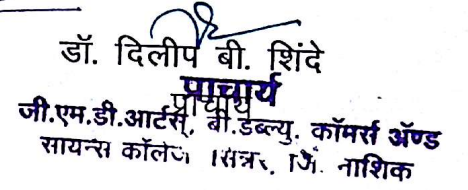 डॉ. दिलीप बी. शिंदे
प्राचार्य
प्राचार्य
जी.एम.डी.आर्टस्, बी.डब्ल्यु. कॉमर्स ॲण्ड
सायन्स कॉलेज सिन्नर, जि. नाशिक